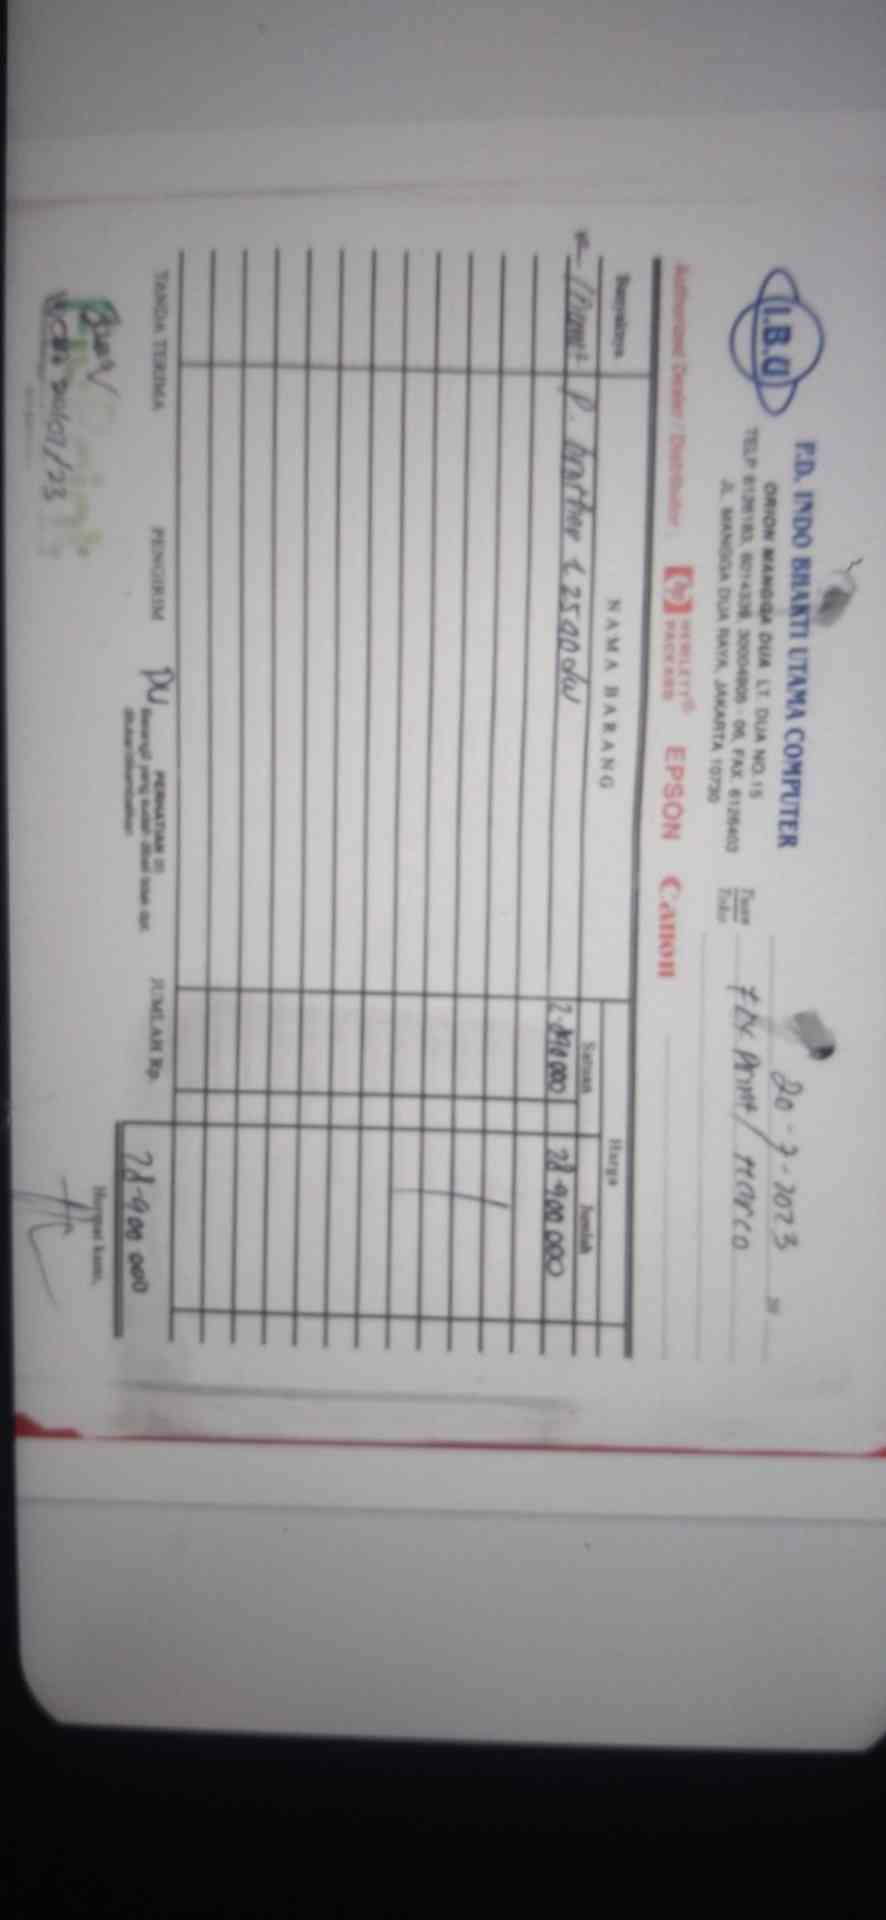 I.B.U
P.D. INDO BHAKTI UTAMA COMPUTER
ORION MANGGA DUA LT. DUA NO.15
TELP 6126183, 6014339, 30004905 - 06, FAX. 6126403
JL. MANGGA DUA RAYA, JAKARTA 10730
20-7-2023 20
Tuan
Toko
Print / Marco
Authorized Dealer / Distributor :
hp HEWLETT® PACKARD EPSON Canon
Banyaknya NAMA BARANG Harga
Satuan Jumlah
P. brother 28.900.000
TANDA TERIMA PENGIRIM JUMLAH Rp. 28.900.000
PERHATIAN !!!
Barang2 yang sudah dibeli tidak dpt.
ditukar/dikembalikan
Hormat kami,
20/07/23